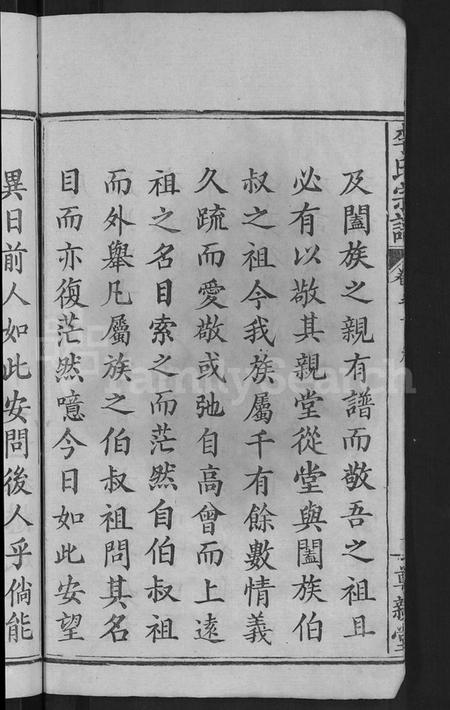 李氏宗譜
及闔族之親有譜而敬吾之祖且
必有以敬其親堂從堂與闔族伯
叔之祖今我族屬千有餘數情義
久疏而愛敬或弛自高曾而上遠
祖之名目索之而茫然自伯叔祖
而外舉凡屬族之伯叔祖問其名
目而亦復茫然噫今日如此安望
異日前人如此安問後人乎倘能
FamilySearch